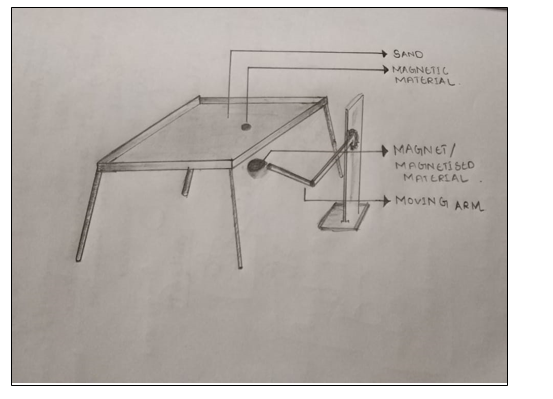 SAND
MAGNETIC
MATERIAL.
MAGNET/
MAGNETISED
MATERIAL.
MOVING ARM